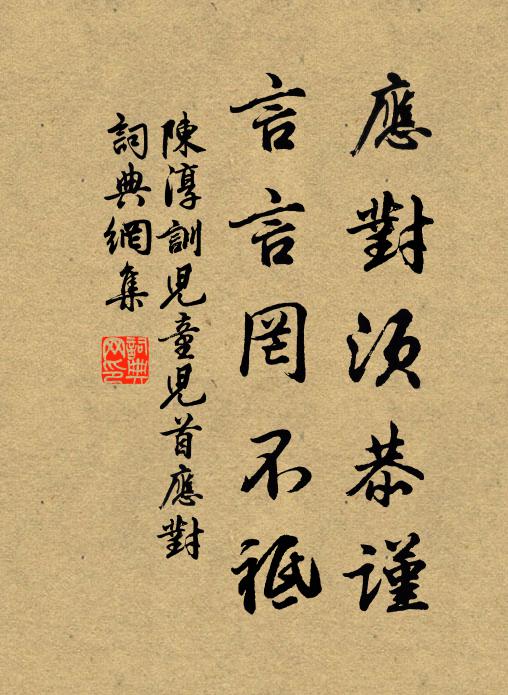 應對須恭謹
言言罔不祗
陳淳訓兒童兒首應對
詞典網集
詞典网印